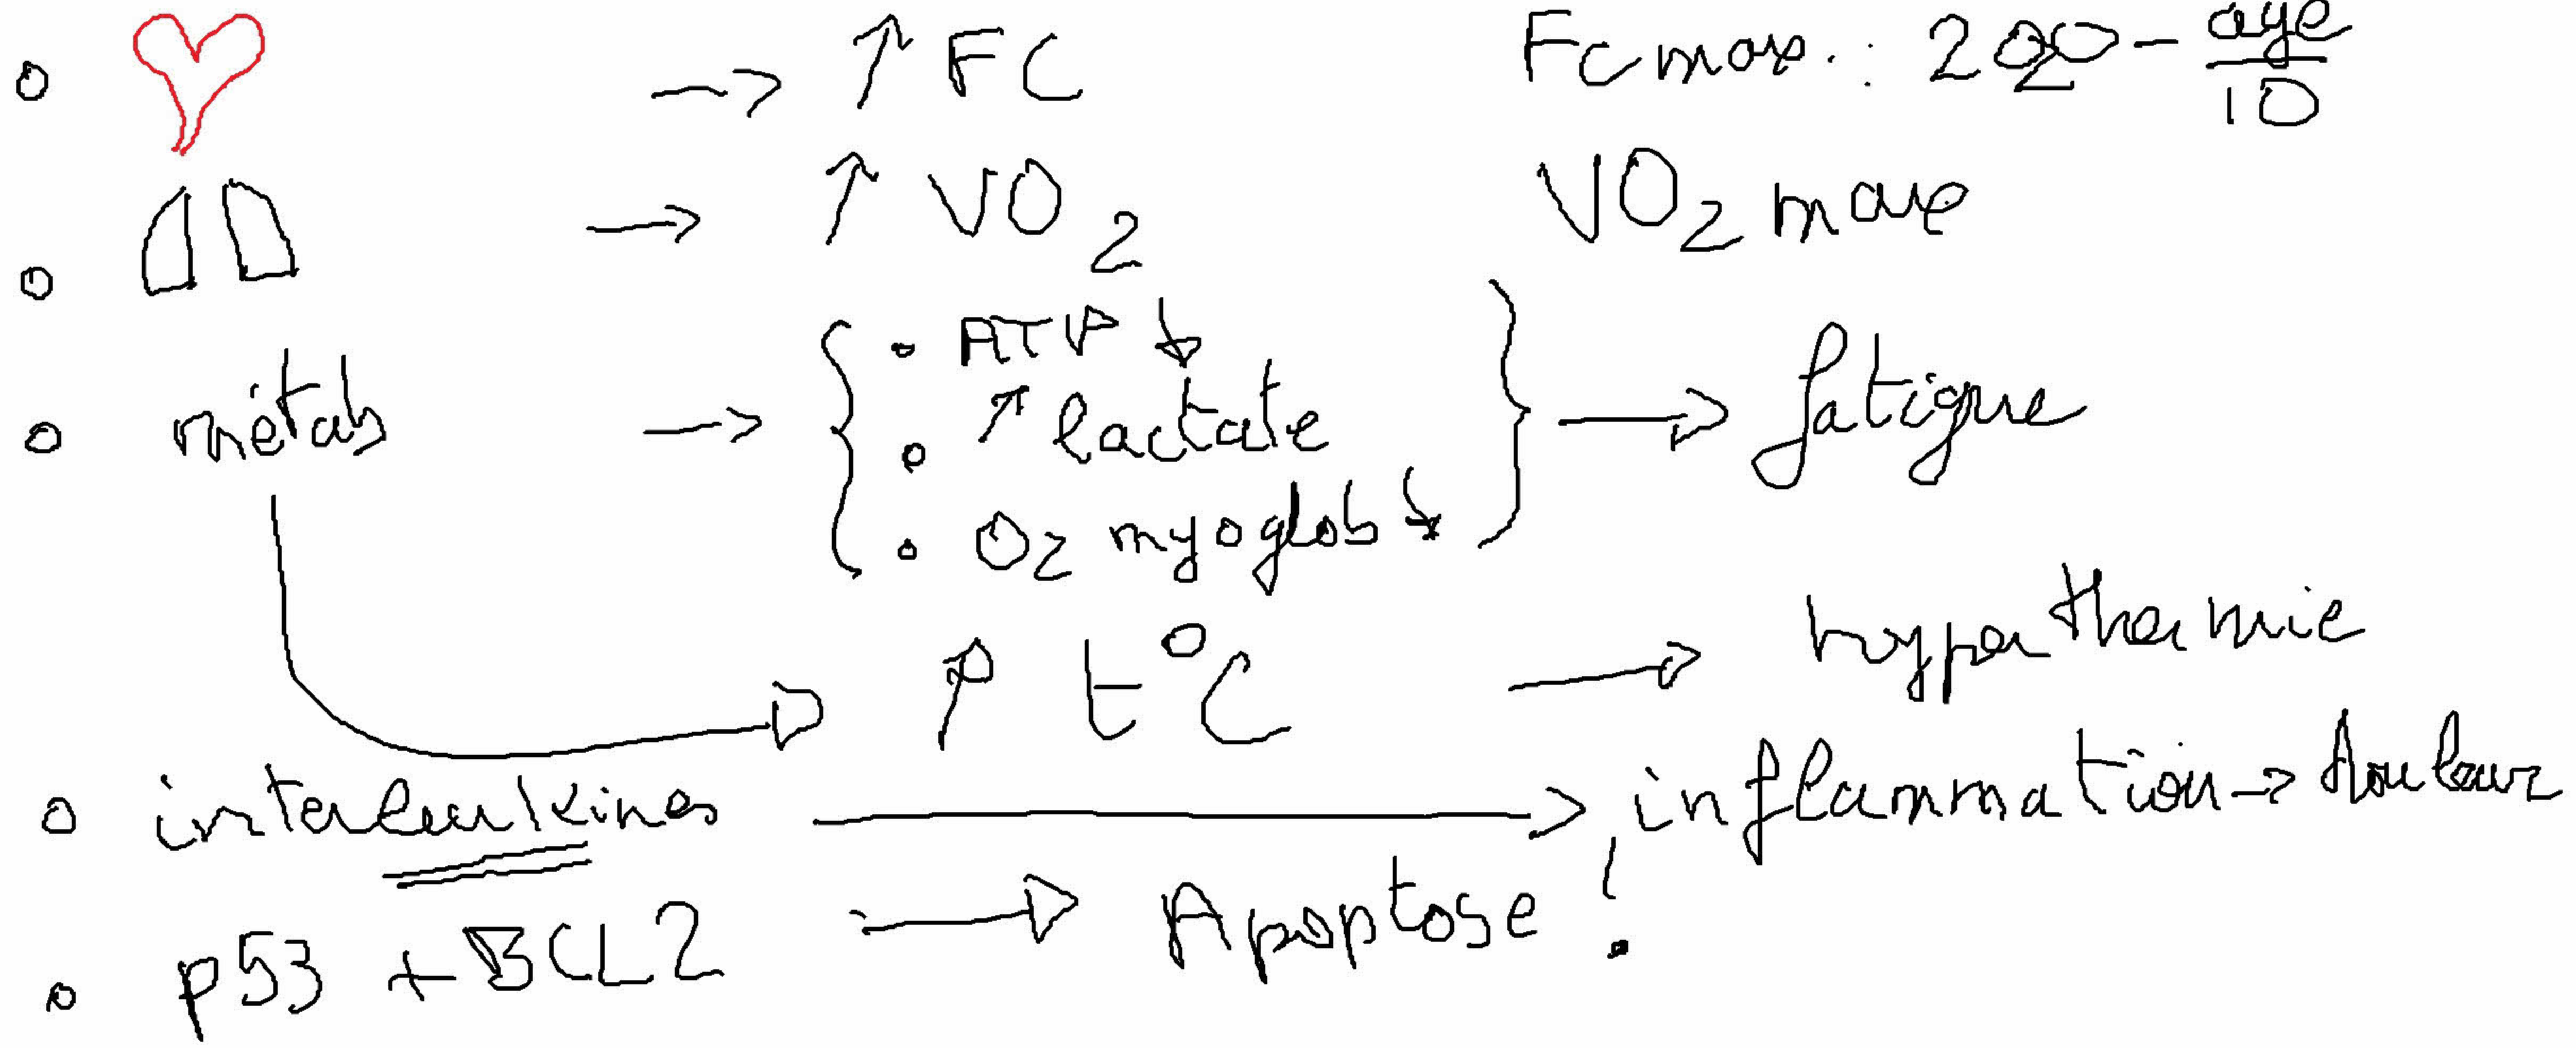 → ↑ FC FC max. : 220 - age/10
→ ↑ VO2 VO2 max
métab → { • ATP ↓
• ↑ lactate } → fatigue
• O2 myoglob ↓
↑ t°C → hyperthermie
interleukines → inflammation → douleur
p53 + BCL2 → Apoptose !